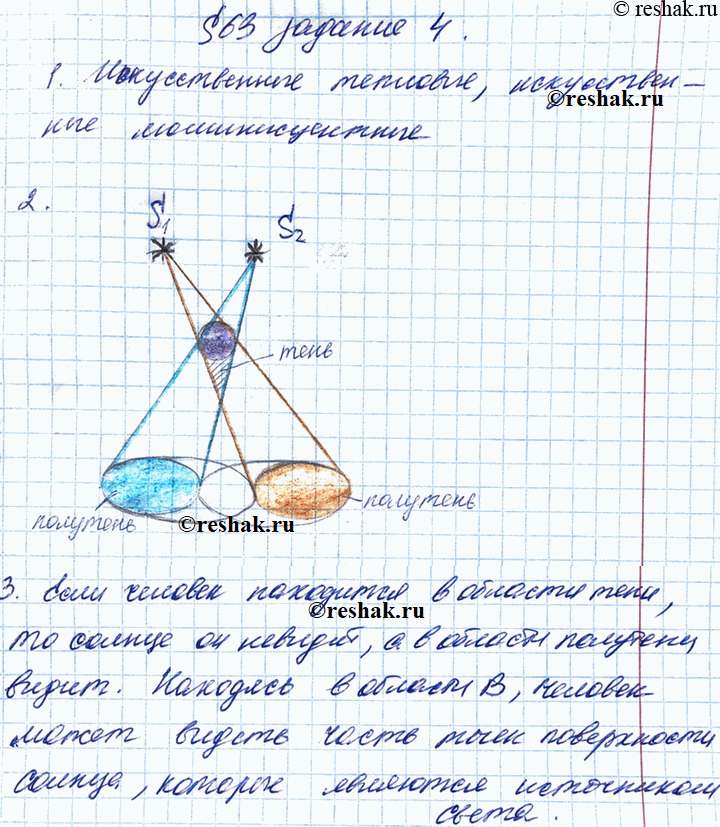 ©reshak.ru
§63 задание 4.
1. Искусственные тепловые, искуствен-
©reshak.ru
ные люминисцентные
2.
S1 S2
тень
полутень
полутень
©reshak.ru
3. Если человек находится в области тени,
©reshak.ru
то солнце он невидит, а в области полутени
видит. Находясь в области В, человек
может видеть часть точек поверхности
солнца, которые являются источником
света.